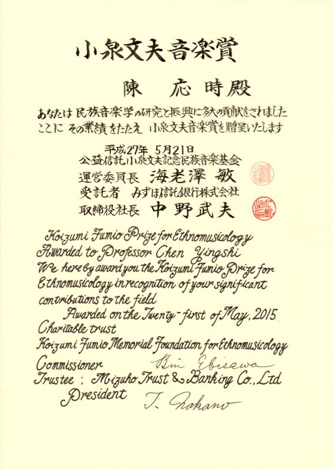 小泉文夫音楽賞
陳 応時殿
あなたは民族音楽学の研究と振興に多大の貢献をされました
ここに その業績をたたえ 小泉文夫音楽賞を贈呈いたします
平成27年 5月21日
公益信託小泉文夫記念民族音楽基金
運営委員長 海老澤 敏
受託者 みずほ信託銀行株式会社
取締役社長 中野武夫
Koizumi Fumio Prize for Ethnomusicology
Awarded to Professor Chen Yingshi
We hereby award you the Koizumi Fumio Prize for
Ethnomusicology in recognition of your significant
contributions to the field
Awarded on the Twenty-first of May, 2015
Charitable trust
Koizumi Fumio Memorial Foundation for Ethnomusicology
Commissioner Bin Ebisawa
Trustee ; Mizuho Trust & Banking Co., Ltd
President T. Nakano